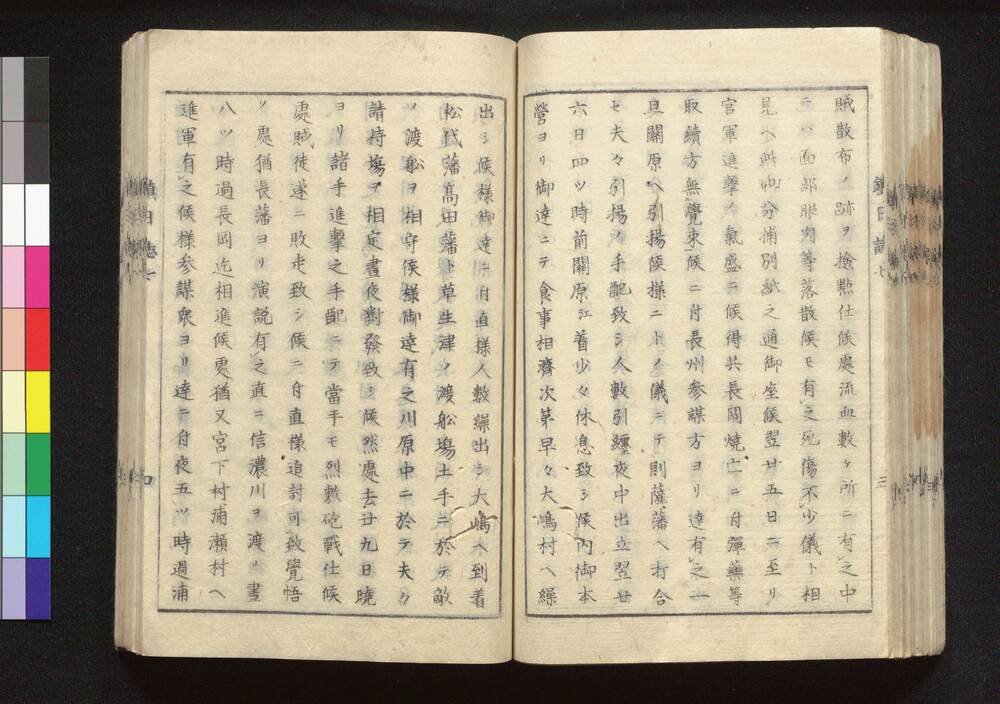 賊散布ノ跡ヲ撿㸃仕候處流血數ヶ所ニ有之中
ニハ面部眼肉等落散候モ有之死傷不少儀ト相
見ヘ此分捕別紙之通御座候翌廿五日ニ至リ
官軍進擊ノ氣盛ニ候得共長岡燒亡ニ付彈藥等
取續方無覺束候ニ付長州參謀方ヨリ達有之一
旦關原ヘ引揚候様ニトノ儀ニテ則薩藩ヘ打合
セ夫々引揚ノ手配致シ人數引纒夜中出立翌廿
六日四ツ時前關原江着少々休息致シ候内御本
營ヨリ御達ニテ食事相濟次第早々大嶋村ヘ繰
鎮日誌七
三
出シ候様御達ニ付直様人數繰出シ大嶋ヘ到着
松代藩髙田藩ト草生津ノ渡船塲土手ニ於テ敵
ノ渡船ヲ相守候様御達有之川原中ニ於テ夫々
請持塲ヲ相定晝夜對發致シ候然處去廿九日曉
ヨリ諸手進擊之手配ニテ當手モ烈敷砲戰仕候
處賊徒遂ニ敗走致シ候ニ付直様追討可致覺悟
ノ處猶長藩ヨリ演説有之直ニ信濃川ヲ渡リ晝
八ツ時過長岡迄相進候處猶又宮下村浦瀬村ヘ
進軍有之候様參謀衆ヨリ達ニ付夜五ツ時過浦